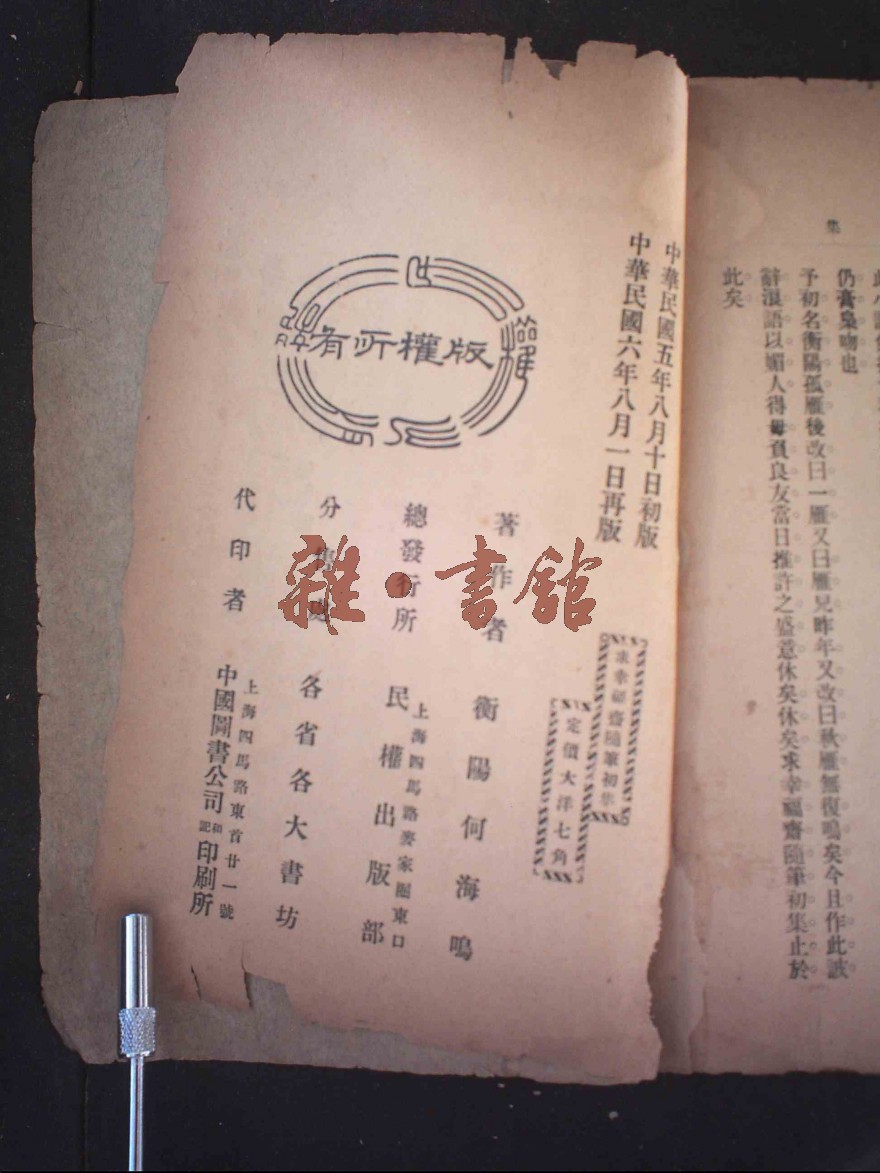 集
仍膏梟吻也
予初名衡陽孤雁後改曰一雁又曰雁兒昨年又改曰秋雁無復鳴矣今且作此誠
辭浪語以媚人得毋負良友當日推許之盛意休矣休矣求幸福齋隨筆初集止於
此矣
中華民國五年八月十日初版
中華民國六年八月一日再版
求幸福齋隨筆初集
定價大洋七角
版權所有
著作者 衡陽何海鳴
總發行所 上海四馬路麥家圈東口 民權出版部
分售處 各省各大書坊
代印者 上海四馬路東首廿一號 中國圖書公司和記印刷所
雜·書館